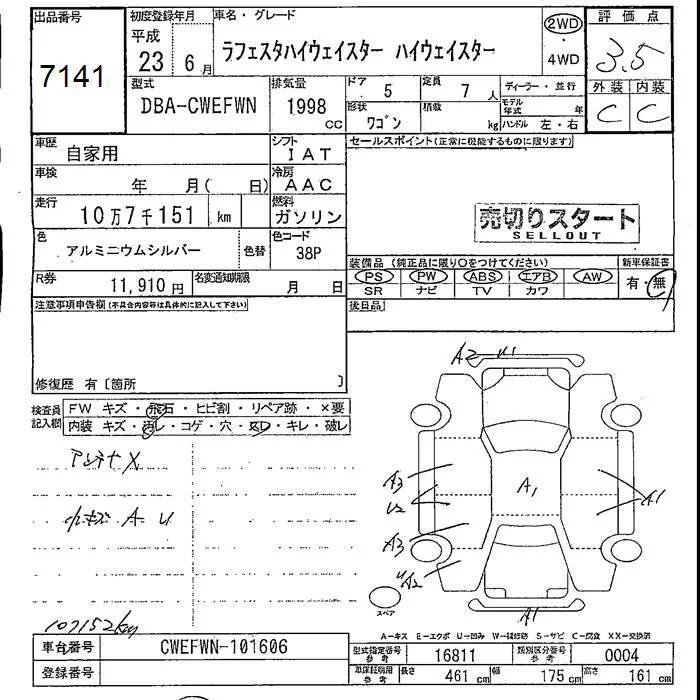 出品番号
7141
初度登録年月
平成
23 6月
車名・グレード
ラフェスタハイウェイスター ハイウェイスター
2WD
・
4WD
評価点
3.5
外装 内装
C C
型式
DBA-CWEFWN
排気量
1998 CC
ドア 5
定員 7人
形状 ワゴン
積載 kg
ディーラー・並行
モデル年式 年
ハンドル 左・右
車歴 自家用
シフト IAT
車検 年 月( 日)
冷房 AAC
走行 10万7千151 km
燃料 ガソリン
色 アルミニウムシルバー
色替
色コード 38P
R券 11,910円
名変通知期限 月 日
セールスポイント(正常に機能するものに限ります)
売切りスタート
SELLOUT
装備品(純正品に限り○をつけてください)
新車保証書
PS PW ABS エアB AW
SR ナビ TV カワ
有・無
後日品
注意事項申告欄(不具合内容等は具体的に記入して下さい)
修復歴 有〔箇所 〕
検査員記入欄
FW キズ・飛石・ヒビ割・リペア跡・×要
内装 キズ・汚レ・コゲ・穴・スレ・キレ・破レ
アンテナX
小キズ A U
107152km
A2
A3
U2
A3
A2
A1
A1
A1
スペア
A-キズ E-エクボ U-凹み W-補修跡 S-サビ C-腐食 XX-交換済
車台番号 CWEFWN-101606
登録番号
型式指定番号 参考 16811
類別区分番号 参考 0004
車庫証明用 参考
長さ 461cm
幅 175cm
高さ 161cm